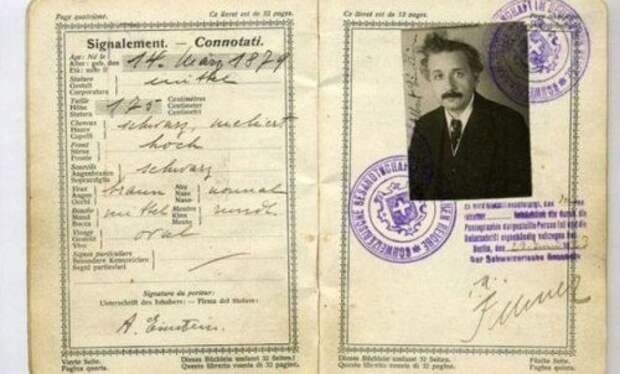 Page quatrième.
Ce livret est de 32 pages.
Signalement. — Connotati.
14. März 1879
Stature
Gestalt
Corporatura
mittel
Taille
Höhe
Statura
175
Centimètres
Centimeter
Centimetri
Cheveux
Haare
Capelli
schwarz, meliert
Front
Stirne
Fronte
hoch
Sourcils
Augenbrauen
Sopracciglia
schwarz
Yeux
Augen
Occhi
braun
Nez
Nase
Naso
normal
Bouche
Mund
Bocca
mittel
Menton
Kinn
Mento
rund
Visage
Gesicht
Viso
oval
Signes particuliers
Besondere Kennzeichen
Segni particolari
Signature du porteur:
Unterschrift des Inhabers: — Firma del titolare:
A. Einstein.
Vierte Seite.
Pagina quarta.
Dieses Büchlein umfasst 32 Seiten.
Questo libretto consta di 32 pagine.
Page cinquième.
Ce livret est de 32 pages.
SCHWEIZERISCHE GESANDTSCHAFT
Photographie dargestellte Person ist und die
Unterschrift eigenhändig vollzogen hat.
Berlin, den
Der Schweizerische Gesandte
Dieses Büchlein umfasst 32 Seiten.
Questo libretto consta di 32 pagine.
Fünfte Seite.
Pagina quinta.